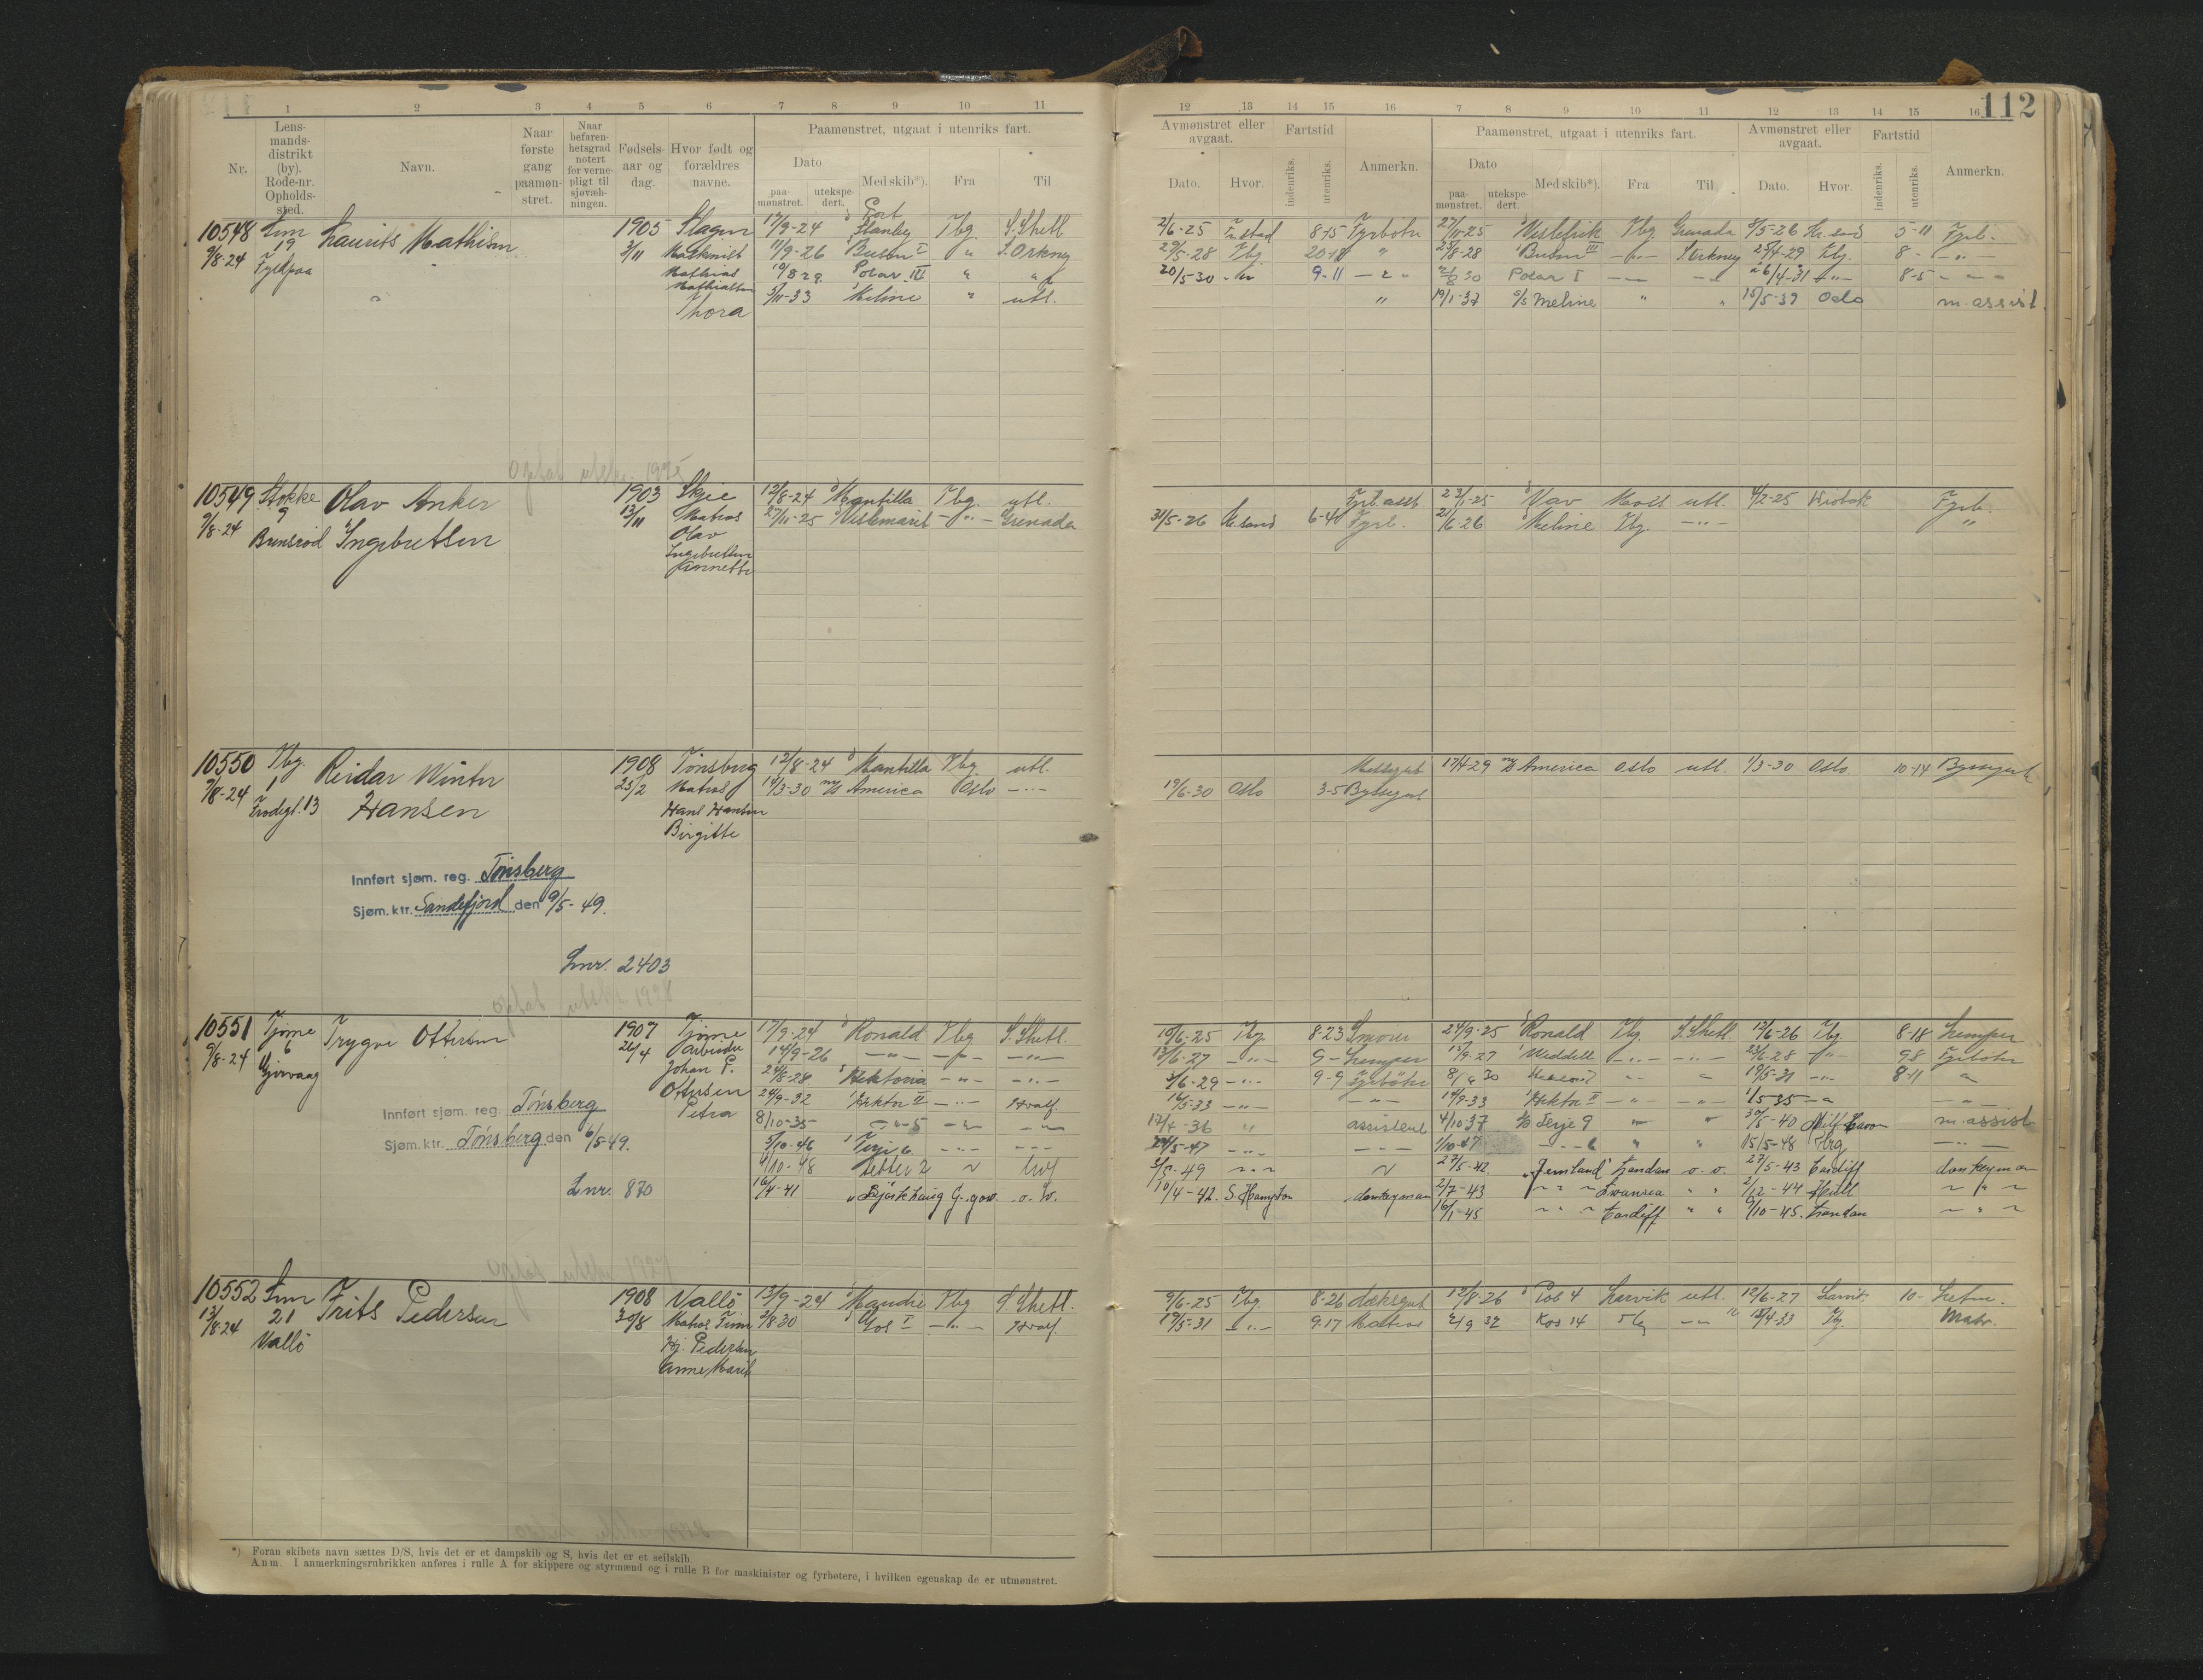 112
1 2 3 4 5 6 7 8 9 10 11 12 13 14 15 16 7 8 9 10 11 12 13 14 15 16
Nr. Lens-mands-distrikt (by). Rode-nr. Opholds-sted. Navn. Naar første gang paamøn-stret. Naar befaren-hetsgrad notert for verne-pligt til sjøvæb-ningen. Fødsels-aar og dag. Hvor født og forældres navne.
Paamønstret, utgaat i utenriks fart. Dato paa-mønstret. utekspe-dert. Med skib*). Fra Til
Avmønstret eller avgaat. Dato. Hvor. Fartstid indenriks. utenriks. Anmerkn.
Paamønstret, utgaat i utenriks fart. Dato paa-mønstret. utekspe-dert. Med skib*). Fra Til
Avmønstret eller avgaat. Dato. Hvor. Fartstid indenriks. utenriks. Anmerkn.
10548 Sem Laurits Mathisen 1905 Slagen 17/9-24 Port Stanley Tbg. S. Shetl. 2/6-25 8-15 Fyrbøter 27/11-25 Tbg. Grenada 8/5-26 Kr.sand 5-11 Fyrb.
9/8-24 19 3/11 Maskinist 11/9-26 Busen I " S. Orkney 29/5-28 Tbg. 20-18 " 25/8-28 Busen III -"- S. Orkney 25/4-29 Tbg. 8- -"-
Mathias 10/8 29 Polar III " " 20/5-30 9-11 30 Polar I 26/4-31 -"- 8-5
Mathiassen 3/11-33 Meline " utl. " 19/1-37 s/s Meline " " 15/5-39 Oslo m. assist.
Thora
10549 Stokke Olav Anker 1903 Skjee 12/8-24 Mantilla Tbg. utl. Fyrb.asst. 23/1-25 Vav Moss utl. 4/2-25 Fyrb.
9/8-24 9 Ingebretsen 13/11 Matros 27/11-25 -"- Grenada 31/5-26 Kr.sand 6-4 Fyrb. 21/6-26 Meline Tbg. -"- "
Brunsrød Olav
Ingebretsen
Annette
10550 Tbg. Reidar Winter 1908 Tønsberg 12/8-24 Mantilla Tbg. utl. Messegut 17/4-29 m/s America Oslo utl. 1/3-30 Oslo. 10-14 Byssegut
9/8-24 1 Hansen 25/2 Matros 14/3-30 m/s America Oslo -"- 19/6-30 Oslo 3-5 Byssegut
13 Hans Hansen
Birgitte
Innført sjøm. reg. Tønsberg
Sjøm. ktr. Sandefjord den 9/5-49.
Lnr. 2403
10551 Tjøme Trygve Ottersen 1907 Tjøme 17/9-24 Ronald Tbg S. Shetl. 10/6-25 Tbg. 8-23 Smører 24/9-25 Ronald Tbg. S. Shetl. 12/6-26 Tbg. 8-18 Lemper
9/8-24 6 26/4 arbeider 14/9-26 -"- -"- -"- 13/6-27 -"- 9- Lemper 15/9-27 Weddell -"- -"- 23/6-28 -"- 9 8 Fyrbøter
Johan P. 24/8-28 Hektoria -"- -"- 3/6-29 -"- 9-9 Fyrbøter 30 19/5-31 -"- 8-11
Ottersen 24/9-32 Hektor II -"- Hvalf. 16/5-33 -"- -"- 19/9-33 Hektor II -"- -"- 1/5-35 -"-
Innført sjøm. reg. Tønsberg Petra 8/10-35 -"-5 -"- -"- 17/4-36 " assistent 4/10 37 s/s Terje 9 30/5-40 m. assist
Sjøm. ktr. Tønsberg den 6/5-49. 5/10-46 Terje 6 -"- 24/5-47 -"- -"- 1/10-47 " " 15/5-48 Tbg -"-
4/10-48 hvf 3/5-49 27/5-42 "Jemtland" London o. o. 27/5-43 Cardiff donkeyman
Lnr. 870 16/4-41 "Bjørkhaug G.gow. o. o. 10/4-42. S. Hampton donkeyman 2/7-43 Swansea " " 2/12-44 Hull
16/1-45 Cardiff " " 9/10-45. London
10552 Sem Frits Pedersen 1908 Vallø 13/9-24 Maudie Tbg S. Shetl. 9/6-25 Tbg. 8-26 dæksgut 12/8-26 Pol 4 Larvik utl. 12/6-27 Larvik. 10-
13/8-24 21 30/8 Matros 2/8-30 Kos I -"- Hvalf. 19/5-31 -"- 9-17 Matros 2/9 32 Kos 14 4-33 Matr.
Vallø Pedersen
Anne Marie
*) Foran skibets navn sættes D/S, hvis det er et dampskib og S, hvis det er et seilskib.
Anm. I anmerkningsrubrikken anføres i rulle A for skippere og styrmænd og i rulle B for maskinister og fyrbøtere, i hvilken egenskap de er utmønstret.